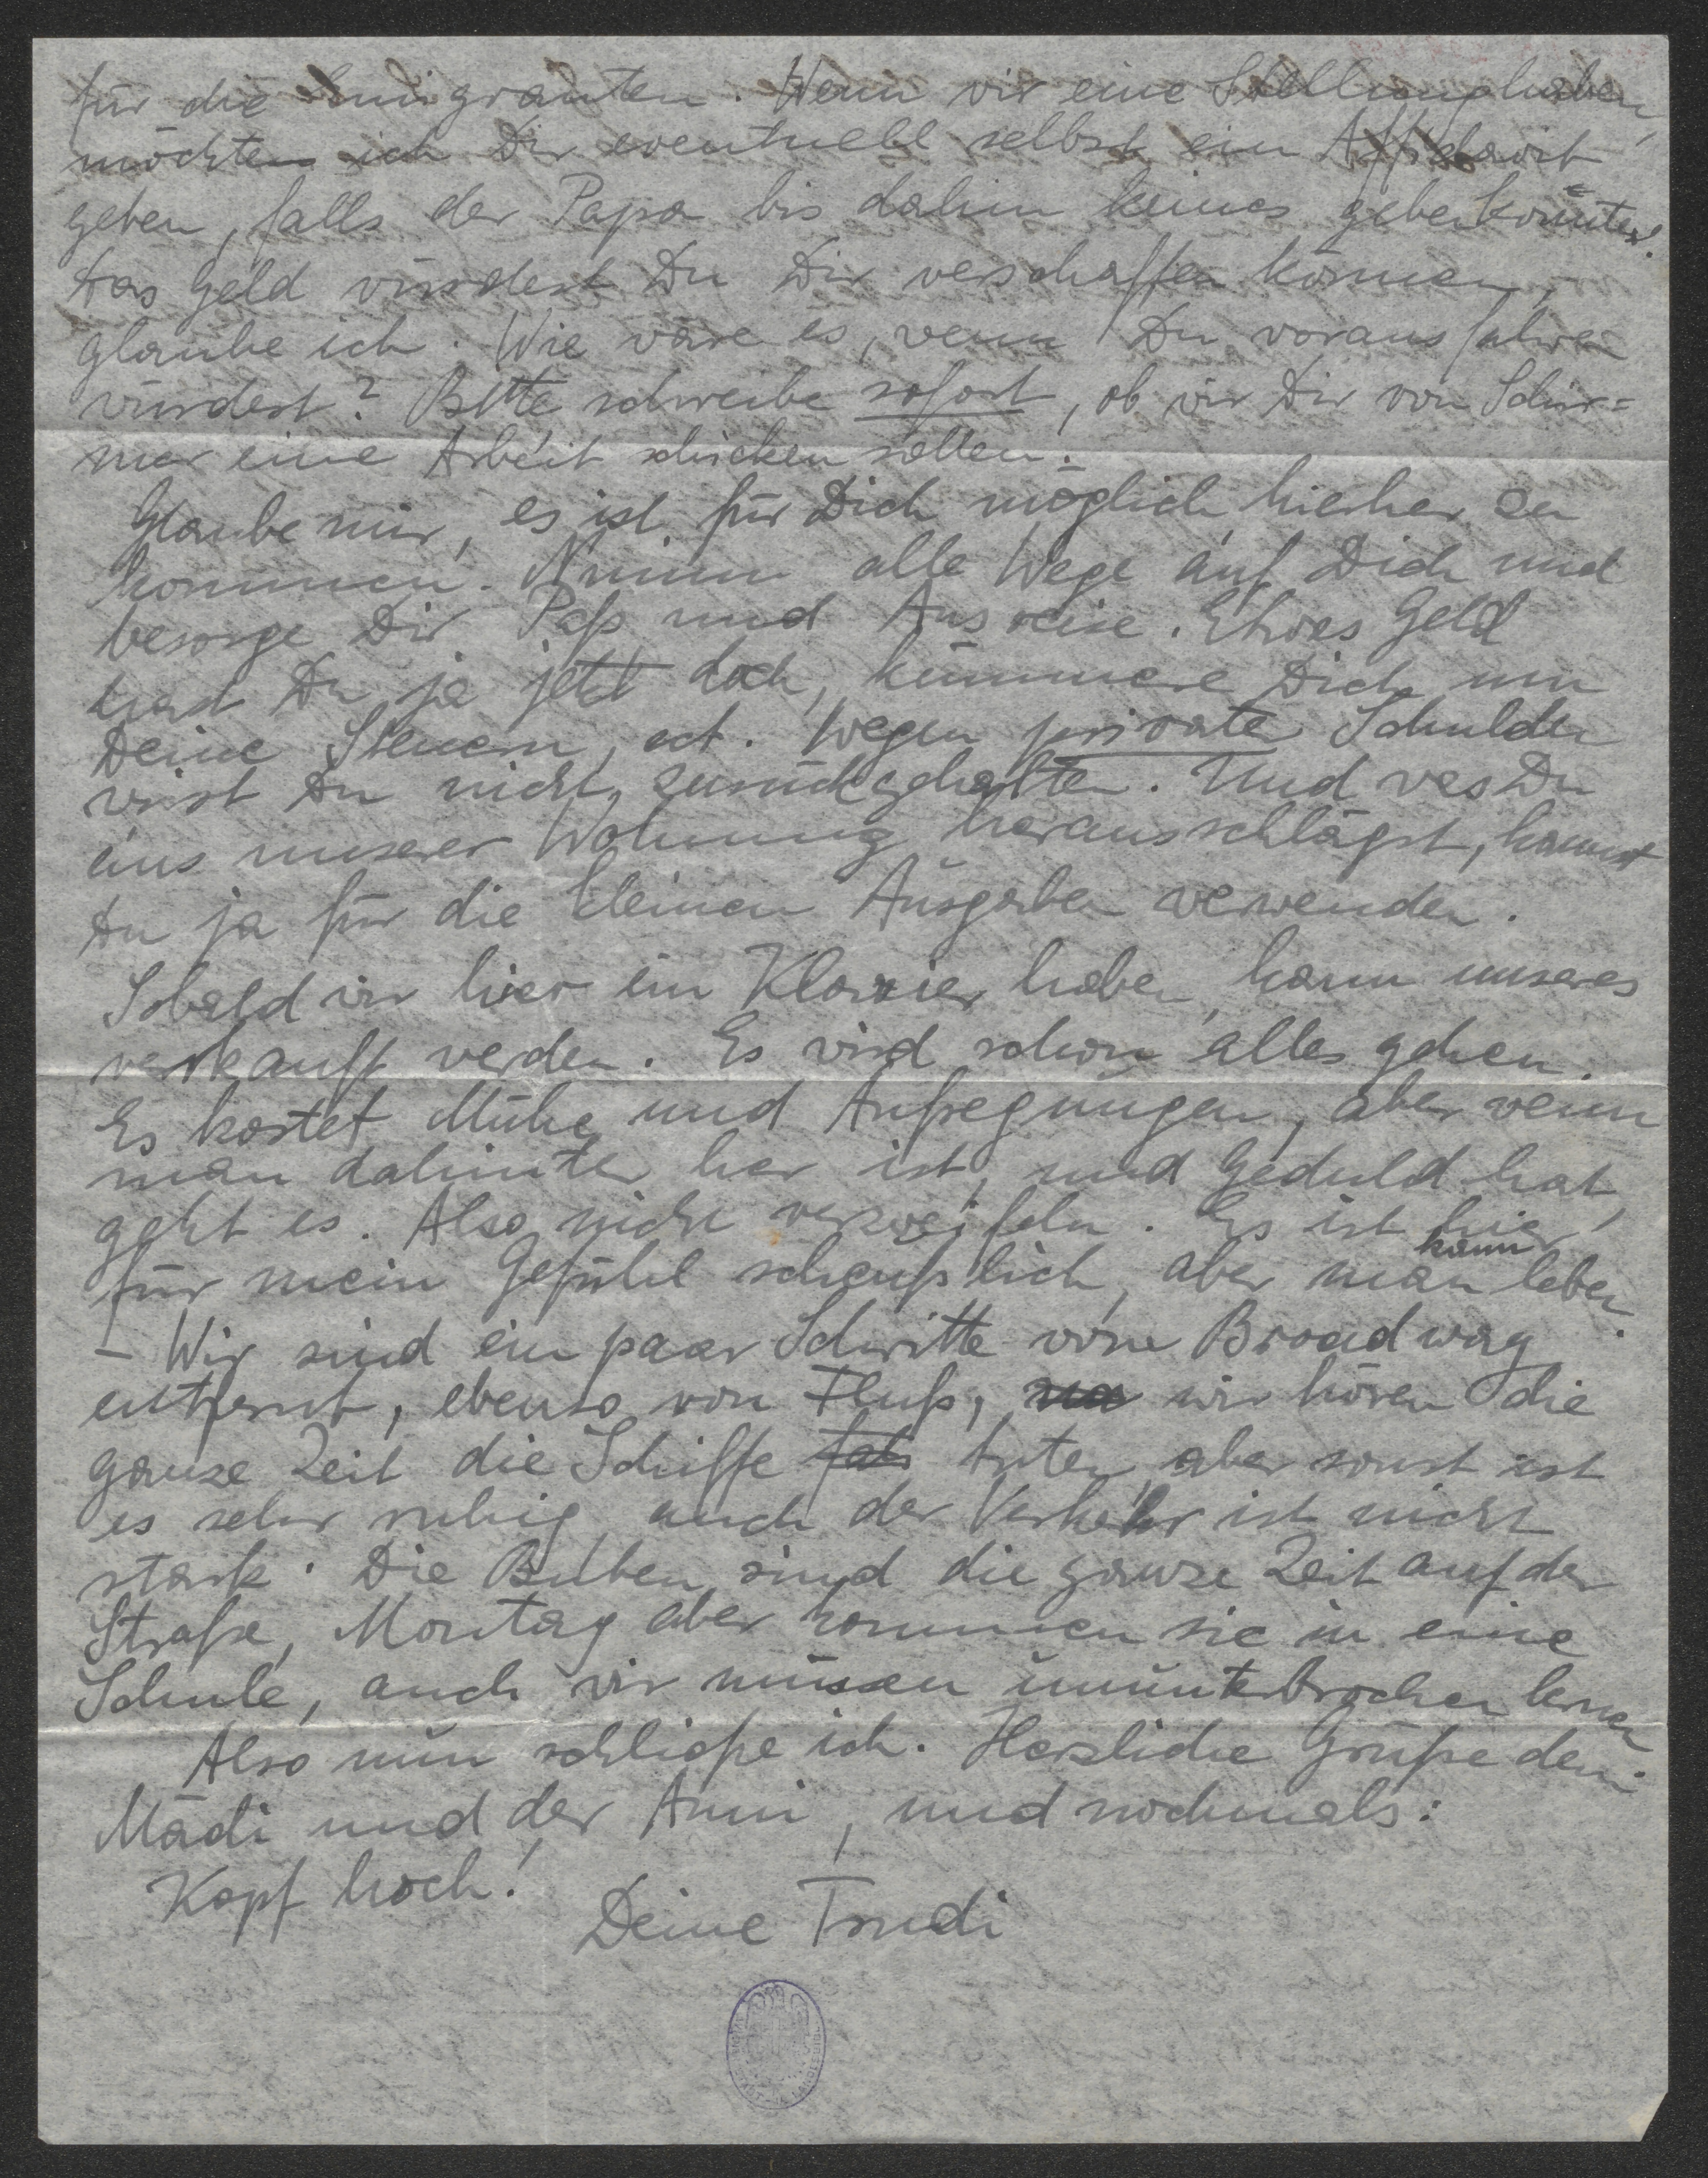 für die Emigranten. Wenn wir eine Stellung haben,
möchten ich Dir eventuell selbst ein Affidavit
geben, falls der Papa bis dahin keines geben könnte!
Das Geld würdest Du Dir verschaffen können,
glaube ich. Wie wäre es, wenn Du voraus fahren
würdest? Bitte schreibe sofort, ob wir Dir von Schir=
mer eine Arbeit schicken sollen.
Glaube mir, es ist für Dich möglich hierher zu
kommen. Nimm alle Wege auf Dich und
besorge Dir Paß und Ausreise. Etwas Geld
hast Du ja jetzt doch, kümmere Dich um
Deine Steuern, ect. Wegen private Schulden
wirst Du nicht zurückgehalten. Und was Du
aus unserer Wohnung herausschlägst, kannst
Du ja für die kleinen Ausgaben verwenden.
Sobald wir hier ein Klavier haben, kann unseres
verkauft werden. Es wird schon alles gehen.
Es kostet Mühe und Aufregungen, aber wenn
man dahinter her ist, und Geduld hat,
geht es. Also nicht verzweifeln. Es ist hier
für mein Gefühl scheußlich, aber man kann leben.
– Wir sind ein paar Schritte vom Broadway
entfernt, ebenso von Fluß, wir hören die
ganze Zeit die Schiffe tuten, aber sonst ist
es sehr ruhig, auch der Verkehr ist nicht
stark. Die Buben sind die ganze Zeit auf der
Straße, Montag aber kommen sie in eine
Schule, auch wir müssen ununterbrochen lernen
Also nun schließe ich. Herzliche Grüße dem
Mädi und der Anni, und nochmals:
Kopf hoch!
Deine Trudi